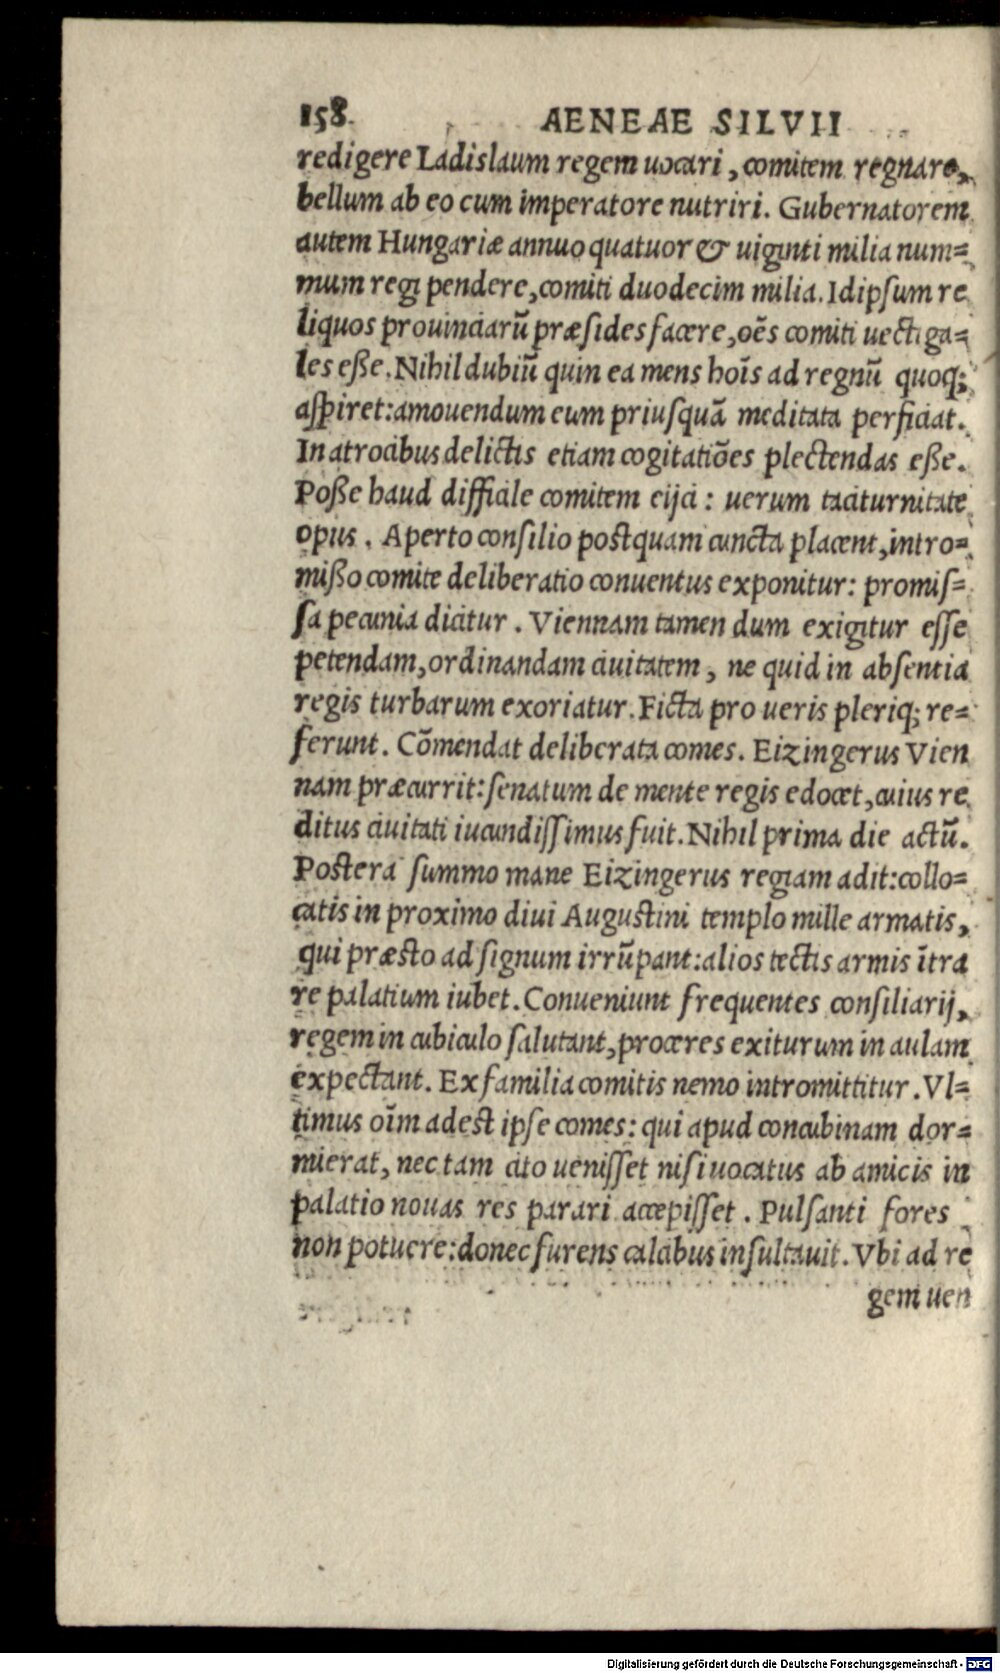 158. AENEAE SILVII
redigere Ladislaum regem uocari, comitem regnare,
bellum ab eo cum imperatore nutriri. Gubernatorem
autem Hungariæ annuo quatuor & uiginti milia num=
mum regi pendere, comiti duodecim milia. Idipſum re
liquos prouinciarũ præſides facere, oẽs comiti uectiga=
les eße. Nihil dubiũ quin ea mens hoĩs ad regnũ quoq;
aſpiret: amouendum eum priuſquã meditata perficiat.
In atrocibus delictis etiam cogitatiões plectendas eße.
Poße haud difficile comitem eijci: uerum taciturnitate
opus. Aperto conſilio postquam cuncta placent, intro=
mißo comite deliberatio conuentus exponitur: promiſ=
ſa pecunia dicitur. Viennam tamen dum exigitur eſſe
petendam, ordinandam ciuitatem, ne quid in abſentia
regis turbarum exoriatur. Ficta pro ueris pleriq; re=
ferunt. Cõmendat deliberata comes. Eizingerus Vien
nam præcurrit: ſenatum de mente regis edocet, cuius re
ditus ciuitati iucundiſſimus fuit. Nihil prima die actũ.
Postera ſummo mane Eizingerus regiam adit: collo=
catis in proximo diui Augustini templo mille armatis,
qui præsto ad ſignum irrũpant: alios tectis armis ĩtra
re palatium iubet. Conueniunt frequentes conſiliarij,
regem in cubiculo ſalutant, proceres exiturum in aulam
expectant. Ex familia comitis nemo intromittitur. Vl=
timus oĩm adest ipſe comes: qui apud concubinam dor=
mierat, nec tam cito ueniſſet niſi uocatus ab amicis in
palatio nouas res parari accepiſſet. Pulſanti fores
non potuere: donec furens calcibus inſultauit. Vbi ad re
gem uen
Digitalisierung gefördert durch die Deutsche Forschungsgemeinschaft - DFG